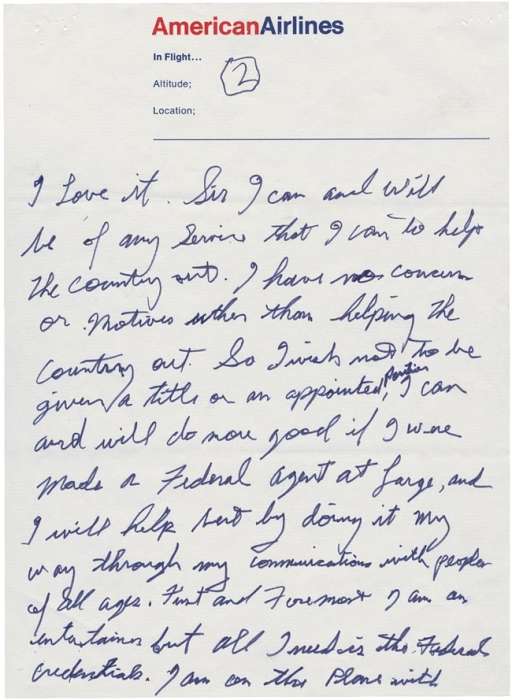 AmericanAirlines
In Flight...
Altitude;
2
Location;
I Love it. Sir I can and will
be of any Service that I can to help
the country out. I have no concern
or Motives other than helping the
country out. So I wish not to be
given a title or an appointed position, I can
and will do more good if I were
made a Federal Agent at Large, and
I will help but by doing it my
way through my communications with people
of all ages. First and Foremost I am an
entertainer but all I need is the Federal
credentials. I am on this Plane with